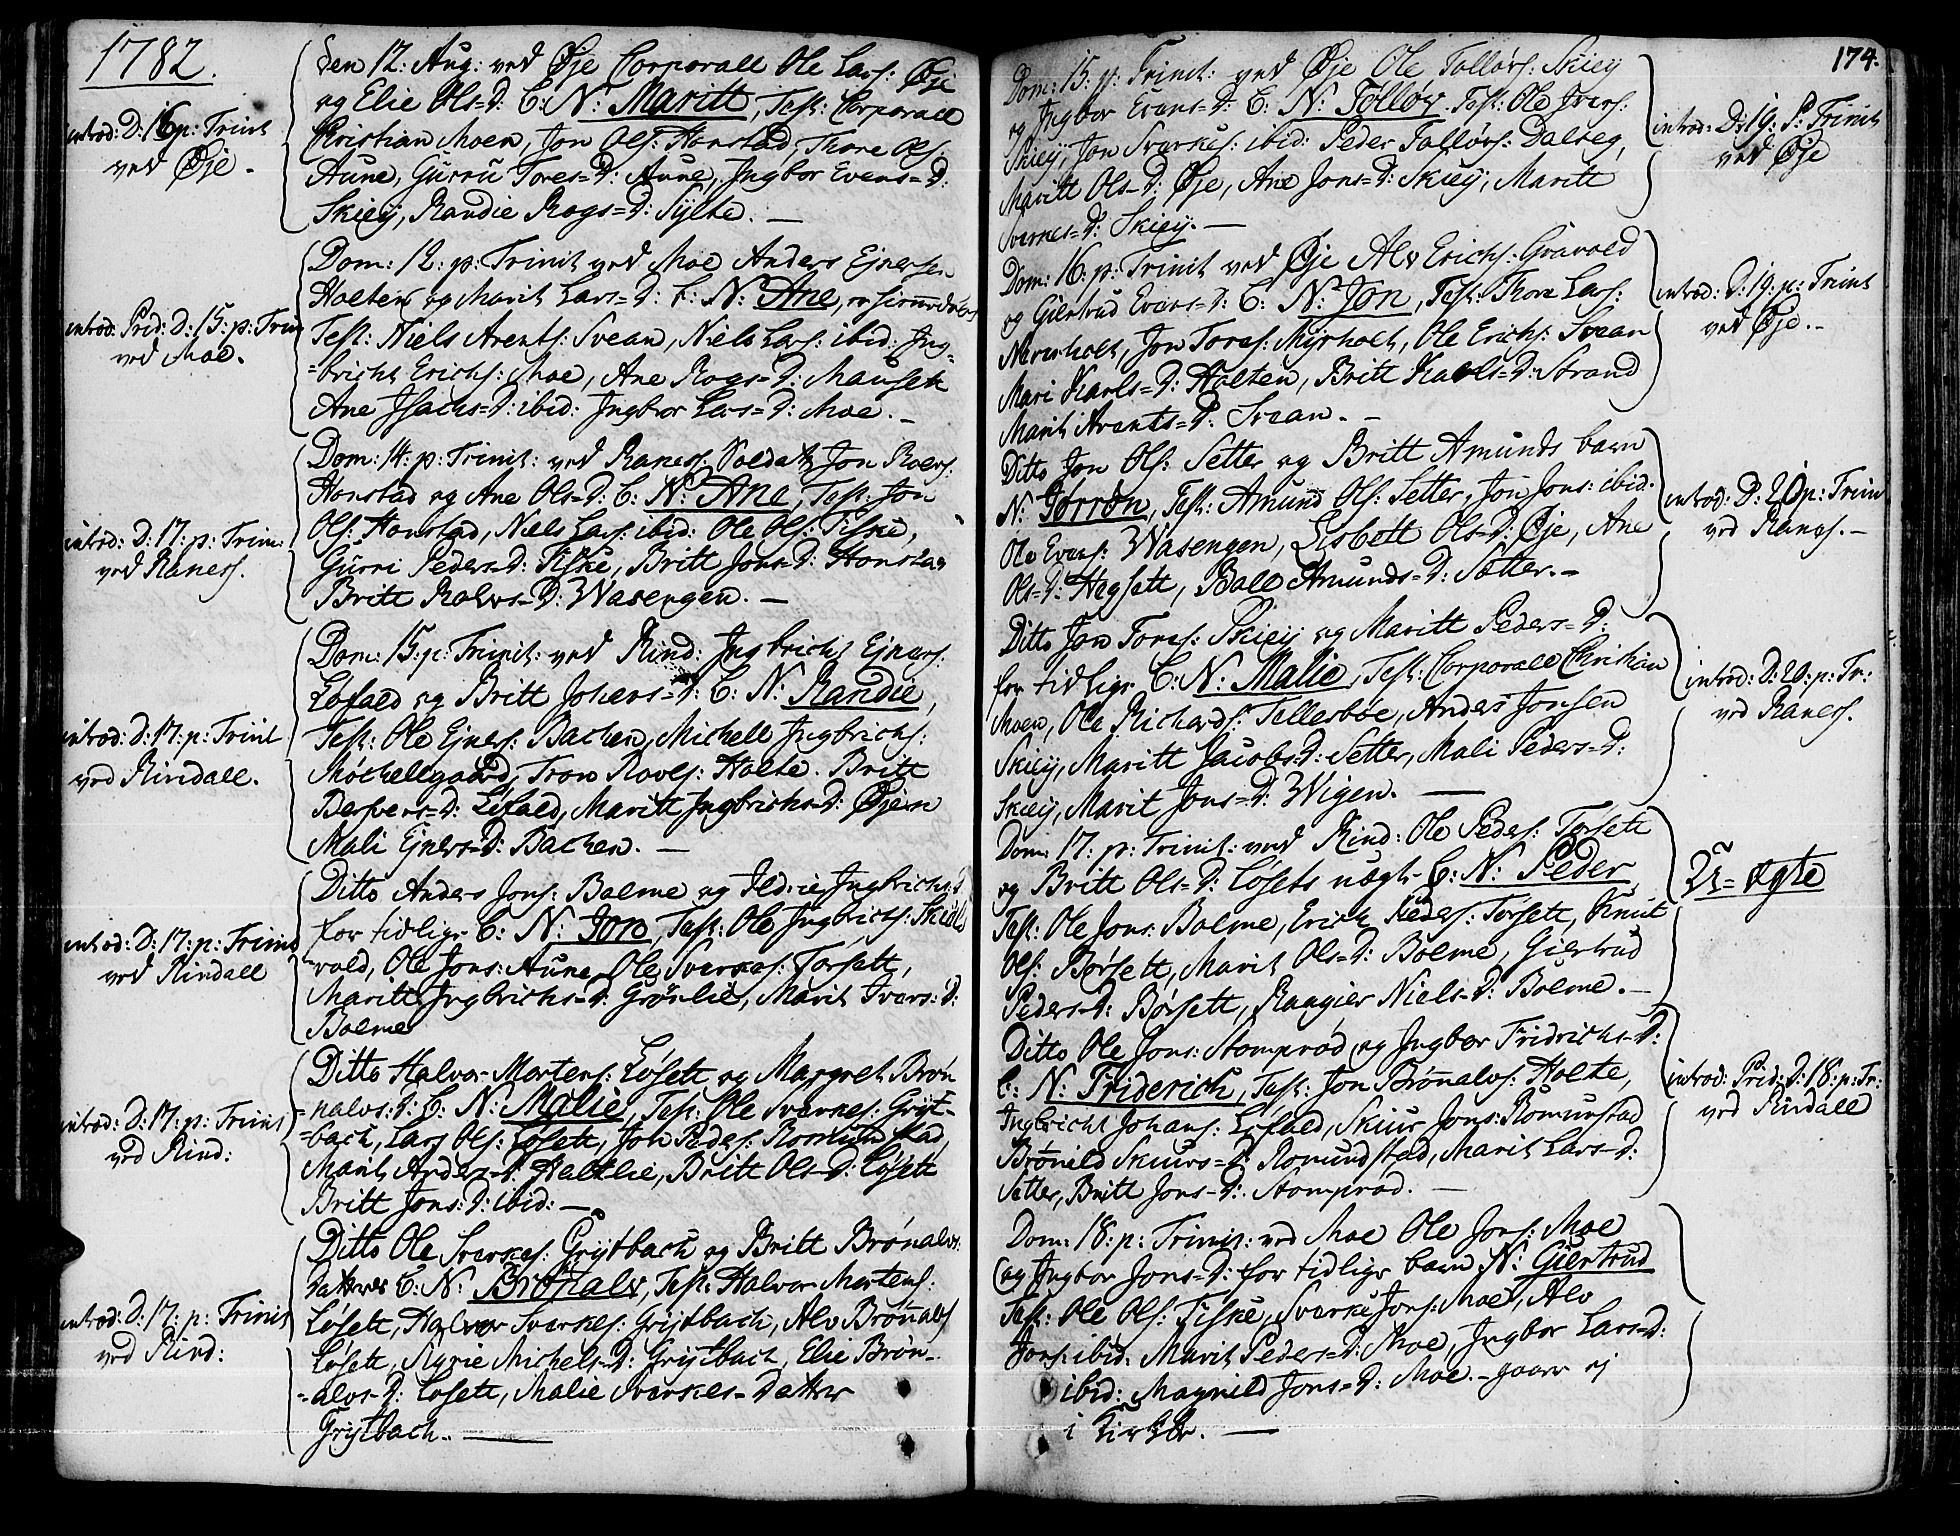 1782.
den 12: Aug: ved Øje Corporall Ole Lars: Øje
og Elie Ols=D: B: N: Maritt, Test: Corporall
Christian Moen, Jon Ols: Honstad, Thore Ols:
Aune, Gurru Tores=D: Aune, Ingbor Evens=D:
Skieij, Randie Rogs=D: Sylte. —
introd: D: 16 p: Trinit
ved Øje.
Dom: 12: p: Trinit ved Moe Anders Ejnersen
Holten og Marit Lars=D: B: N: Ane,
Test: Niels Arents: Svean, Niels Lars: ibid: Ing-
=bricht Erichs: Moe, Ane Rogs=D: Mauseth
Ane Isachs=D: ibid: Ingbor Lars=D: Moe. —
introd: Prid: D: 15: p: Trin
ved Moe.
Dom: 14: p: Trinit: ved Raness. Soldat Jon Roers:
Honstad og Ane Ols=D: B: N: Ane, Test: Jon
Ols: Honstad, Niels Lars: ibid: Ole Ols: Fiske,
Gurri Peders=D: Fiske, Britt Jons=D: Honstad
Britt Rolvs=D: Wasengen. —
introd: D: 17: p: Trin:
ved Raness.
Dom: 15: p: Trinit: ved Rind: Ingbricht Ejners:
Løfald og Britt Johans=D: B: N: Randie,
Test: Ole Ejners: Bachen, Michell Ingbrichs:
Møchellgaard, Tron Rolfs: Holte. Britt
Bersvens=D: Løfald, Maritt Ingbrichs=D: Øjen
Mali Ejners=D: Bachen. —
introd: D: 17: p: Trinit
ved Rindall.
Ditto Anders Jons: Bolme og Ildrie Ingbrichs=D:
for tidlig B: N: Jon, Test: Ole Ingbrichs: Skiøls
vold, Ole Jons: Aune, Ole Sverkes: Torsett,
Maritt Ingbrichs=D: Grønlie, Marit Ivers: D:
Bolme
introd: D: 17: p: Trinit
ved Rindall
Ditto Halvor Mortens: Løsett og Margret Brøn
nalvs: D: B: N: Malie, Test: Ole Sverkes: Gryt-
=bach, Lars Ols: Løsett, Jon Peders: Romundstad,
Marit Anders=D: Haltlie, Britt Ols=D: Løsett
Britt Jons: D: ibid: —
introd: D: 17: p: Trinit
ved Rind:
Ditto Ole Sverkes: Grytbach og Britt Brønalvs:
Datters B: N: Brønalv, Test: Halvor Mortens:
Løsett, Halvor Sverkes: Grytbach, Alv Brønalvs
Løsett, Sigrie Michels=D: Grytbach, Elie Brøn-
-alvs=D: Løsett, Malie Sverkes=Datter
Grytbach. —
introd: D: 17: p: Trinit
ved Rind:
174.
Dom: 15: p: Trinit: ved Øje Ole Follørs: Skieij
og Ingbor Evens=D: B: N: Følløv. Test: Ole Ivers:
Skieij, Jon Sverkes: ibid: Peder Follørs: Dalseg,
Maritt Ols=D: Øje, Ane Jons=D: Skieij, Maritt
Sverkes=D: Skieij. —
introd: D: 19: P: Trinit
ved Øje
Dom: 16: p: Trinit ved Øje Alv Erichs: Gravold
og Giertrud Evens=D: B: N: Jon, Test: Thore Lars:
Nerusholt, Jon Tores: Myrholt, Ole Erichs: Svean
Mari Karls=D: Holten, Britt Karls=D: Strand
Marit Arents=D: Svean. —
introd: D: 19: p: Trinit
ved Øje. —
Ditto Jon Ols: Setter og Britt Amunds barn
N: Gorron, Test: Amund Ols: Setter, Jon Jons: ibid:
Ole Evens: Wasengen, Lisbett Ols=D: Øje, Ane
Ols=D: Hegsett, Baall Amunds=D: Setter. —
introd: D: 20 p: Trin
ved Raness. —
Ditto Jon Tores: Skieij og Maritt Peders=D:
for tidlig B: N: Malie, Test: Corporall Christian
Moen, Ole Richards: Tellesbøe, Anders Jonsen
Skieij, Maritt Jacobs=D: Setter, Mali Peders=D:
Skieij, Marit Jons=D: Wigen. —
introd: D: 20: p: Tr:
ved Raness.
Dom: 17: p: Trinit: ved Rind: Ole Peders: Torsett
og Britt Ols=D: Løsets uægt B: N: Peder,
Test: Ole Jons: Bolme, Erich Peders: Torsett, Knut
Ols: Børsett, Marit Ols=D: Bolme, Giertrud
Peders=D: Børsett, Rangier Niels=D: Bolme. —
Uægte
Ditto Ole Jons: Stomprød og Ingbor Fridrichs=D:
B: N: Friderich, Test: Jon Brønalvs: Holte,
Ingbricht Johans: Løfald, Skiur Jons: Romunstad
Brønild Skiurs=D: Romundstad, Marit Lars=D:
Setter, Britt Jons=D: Stomprød. —
introd: Prid: D: 18: p: Tr:
ved Rindall
Dom: 18: p: Trinit: ved Moe Ole Jons: Moe
og Ingbor Jons=D: for tidlig barn N: Giertrud
Test: Ole Ols: Fiske, Sverke Jons: Moe, Alv
Jons: ibid: Marit Peders=D: Moe, Ingbor Lars=D:
ibid: Magnild Jons=D: Moe. — gaar ej
i Kirke. —